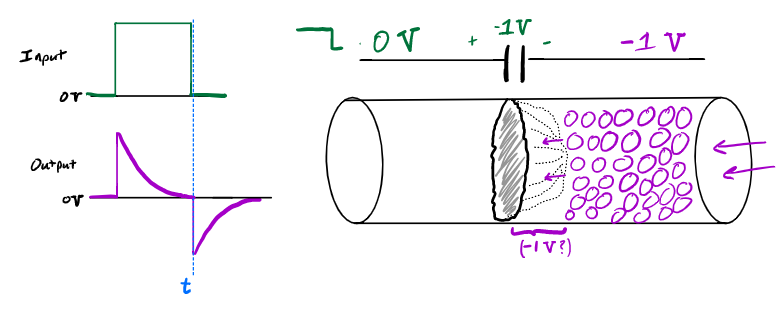 Input
0V
Output
0V
t
-1V
0V + - -1V
(-1V?)